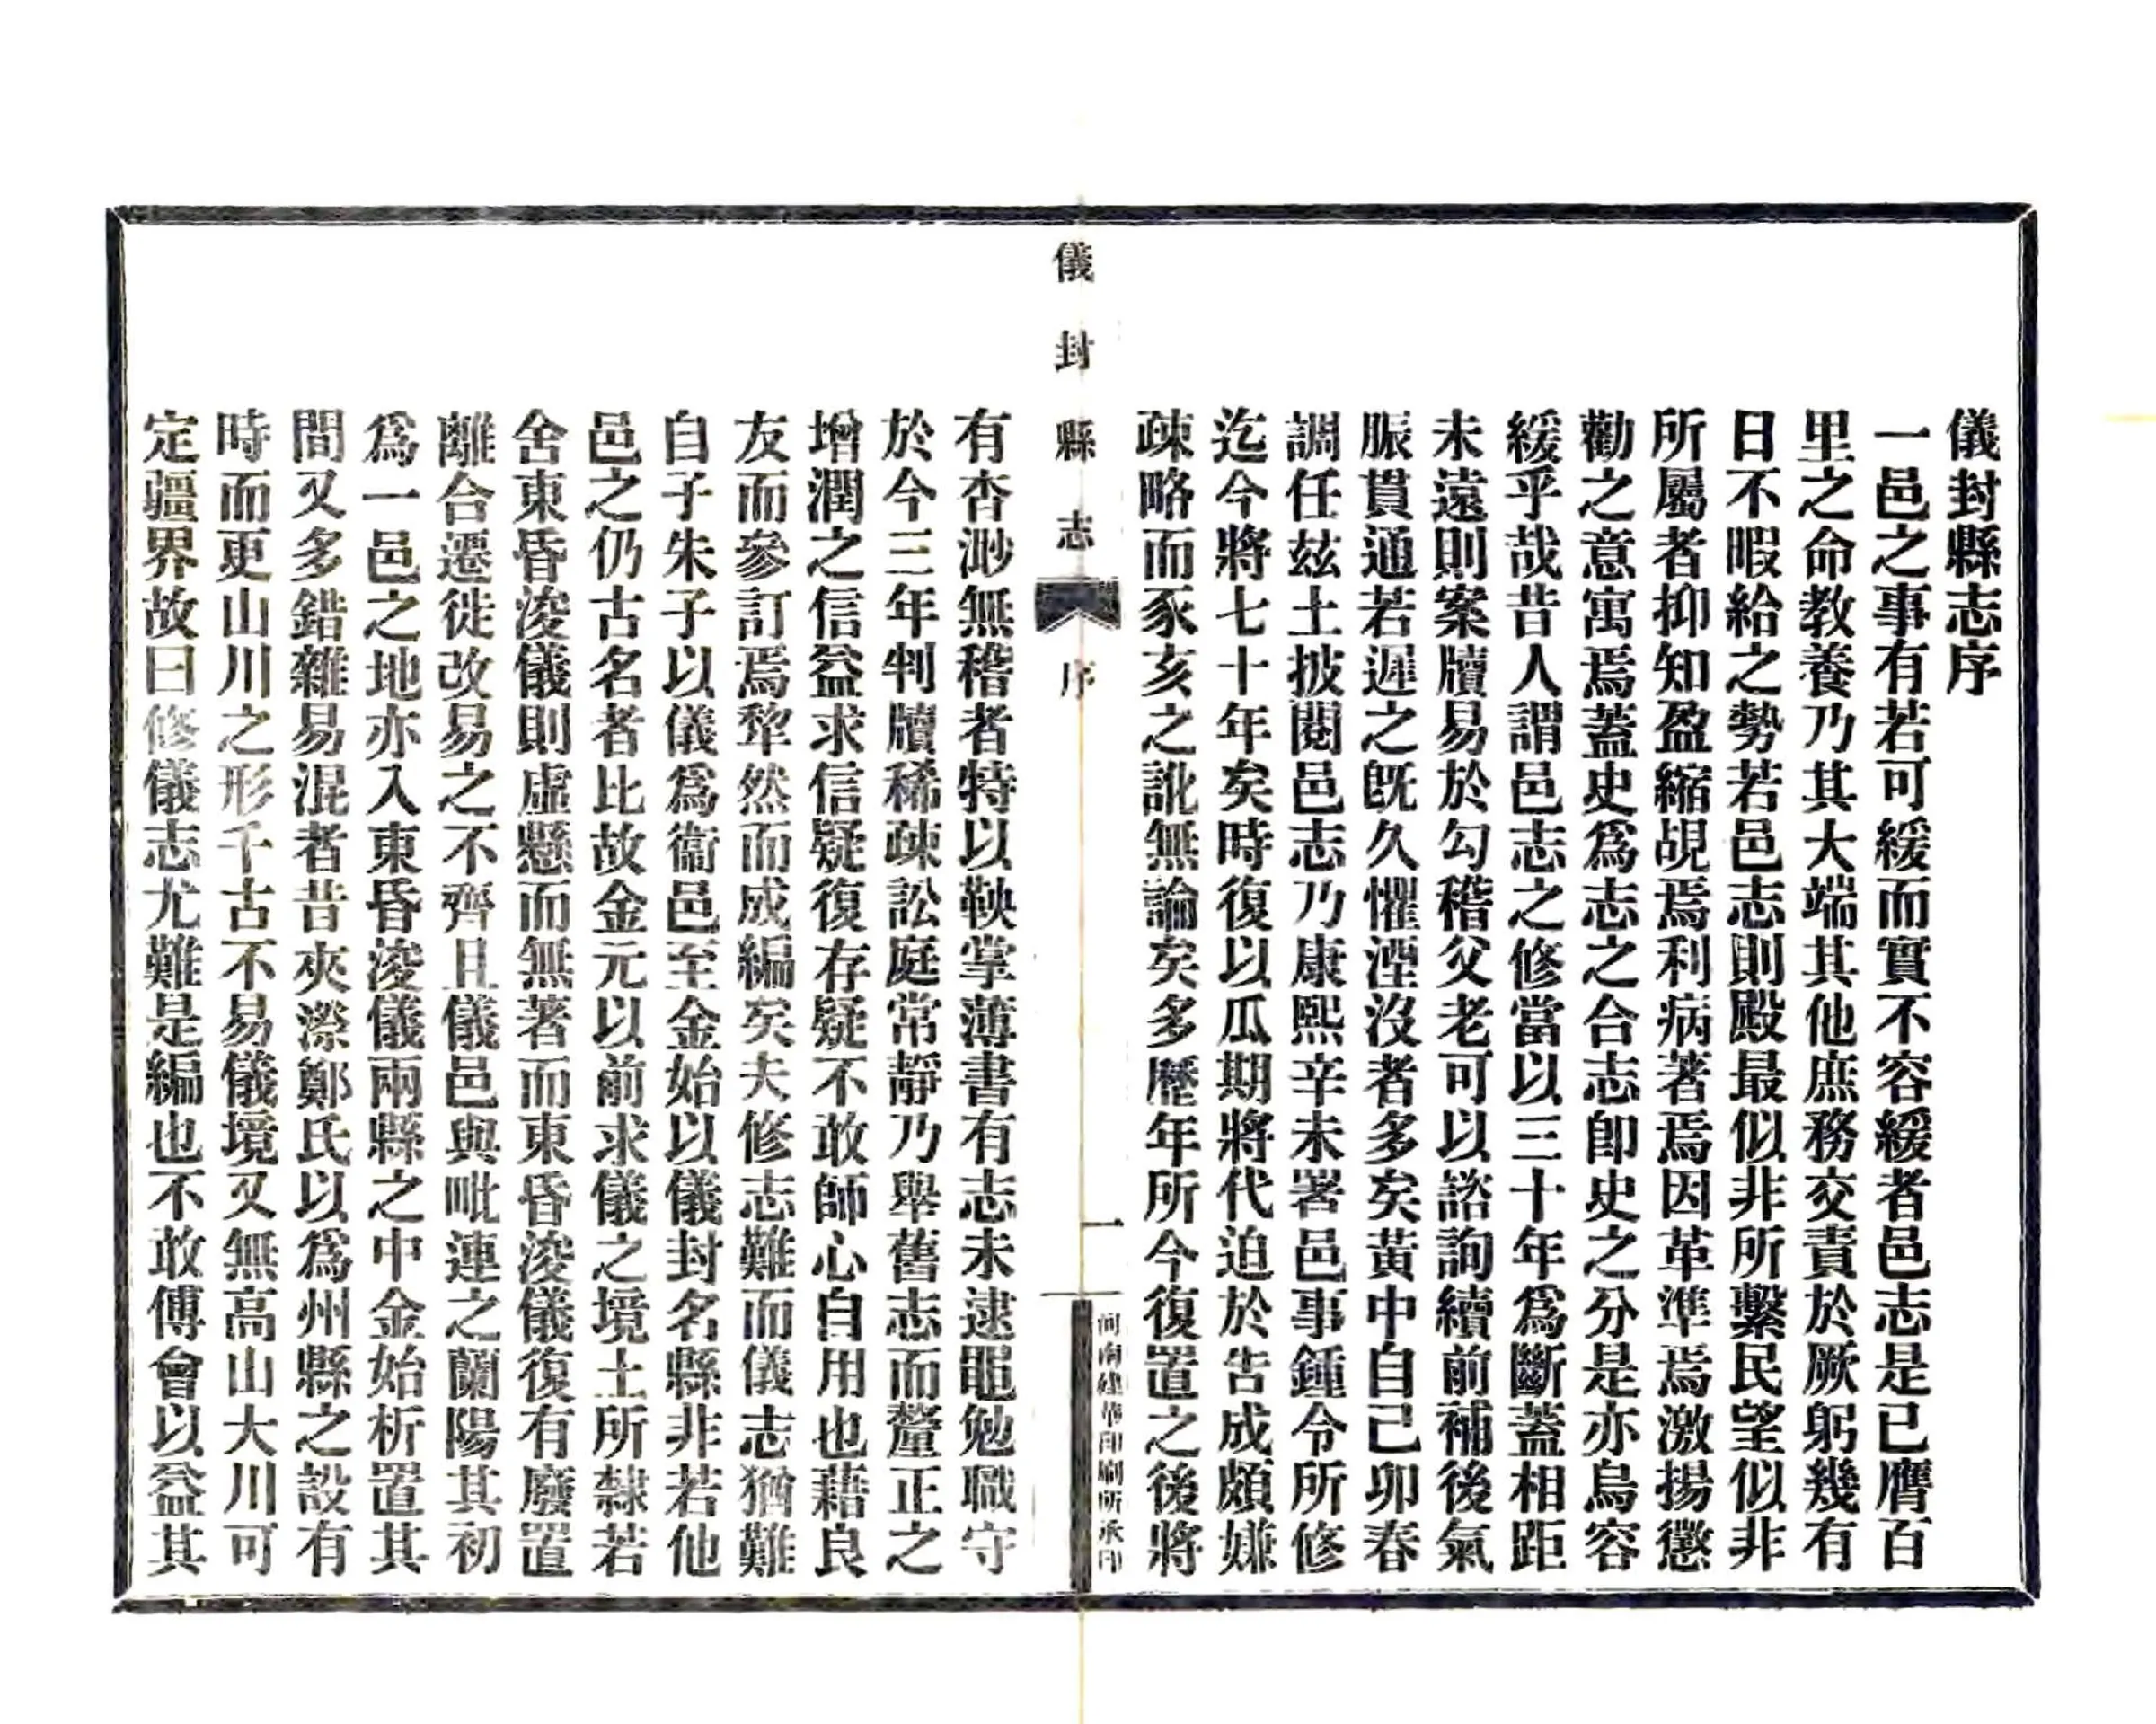 儀封縣志序
一邑之事有若可緩而實不容緩者邑志是已膺百
里之命教養乃其大端其他庶務交責於厥躬幾有
日不暇給之勢若邑志則殿最似非所繫民望似非
所屬者抑知盈縮覘焉利病著焉因革準焉激揚懲
勸之意寓焉蓋史爲志之合志卽史之分是亦烏容
緩乎哉昔人謂邑志之修當以三十年爲斷蓋相距
未遠則案牘易於勾稽父老可以諮詢續前補後氣
脈貫通若遲之旣久懼湮沒者多矣黃中自己卯春
調任玆土披閱邑志乃康熙辛未署邑事鍾令所修
迄今將七十年矣時復以瓜期將代迫於告成頗嫌
疎略而豕亥之訛無論矣多歷年所今復置之後將
儀封縣志
序
一
河南建華印刷所承印
有杳渺無稽者特以鞅掌薄書有志未逮黽勉職守
於今三年判牘稀疎訟庭常靜乃舉舊志而釐正之
增潤之信益求信疑復存疑不敢師心自用也藉良
友而參訂焉犂然而成編矣夫修志難而儀志猶難
自子朱子以儀爲衞邑至金始以儀封名縣非若他
邑之仍古名者比故金元以前求儀之境土所隸若
舍東昏浚儀則虛懸而無著而東昏浚儀復有廢置
離合遷徙改易之不齊且儀邑與毗連之蘭陽其初
爲一邑之地亦入東昏浚儀兩縣之中金始析置其
間又多錯雜易混者昔夾漈鄭氏以爲州縣之設有
時而更山川之形千古不易儀境又無高山大川可
定疆界故曰修儀志尤難是編也不敢傅會以益其